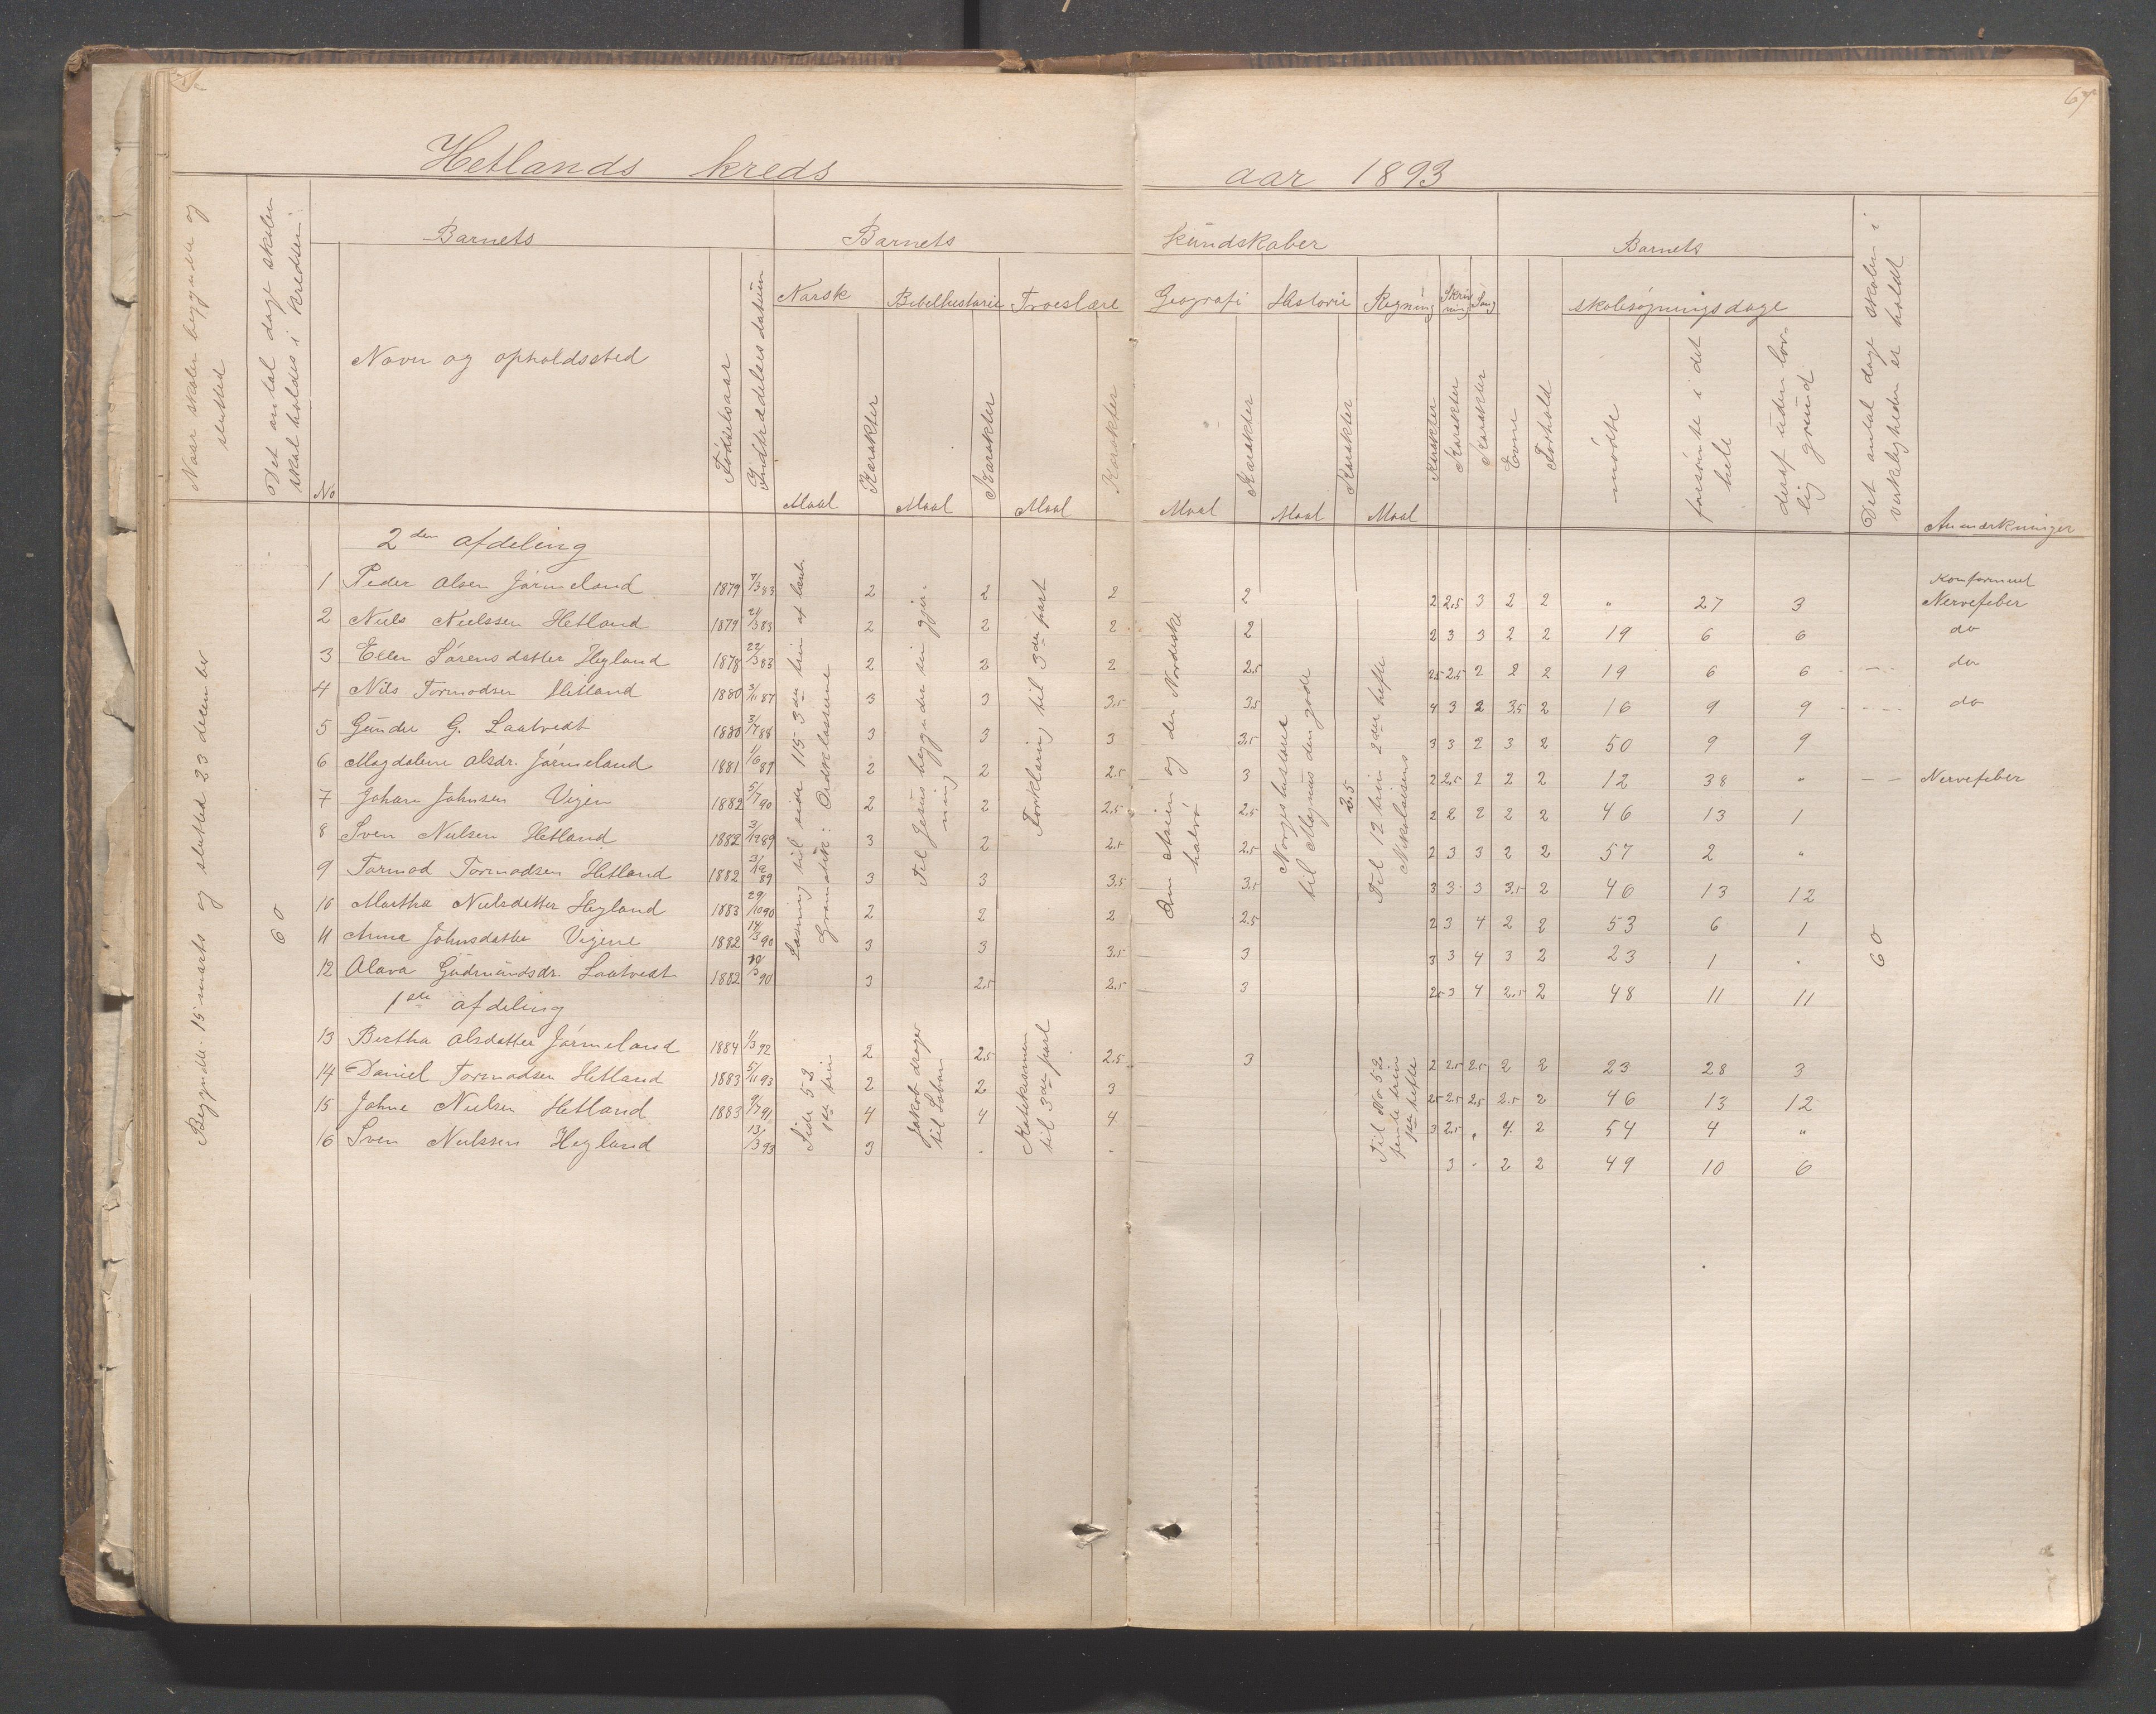 67
Hetlands kreds aar 1893
Naar skolen begyndte og sluttede
Det antal dage skolen skal holdes i kredsen.
Barnets
Barnets kundskaber
Barnets
Det antal dage skolen i virkeligheden er holdt
No
Navn og opholdssted
Fødselsaar
Indtrædelses datum
Norsk
Bibelhistorie
Troeslære
Geografi
Historie
Regning
Skrivning
Sang
skolesøgningsdage
Maal Karakter Maal Karakter Maal Karakter
Maal Karakter Maal Karakter Maal Karakter Karakter Karakter Evne Forhold
mødte
forsømte i det hele
deraf uden lovlig grund
Anmærkninger
Begyndte 15 marts og slutted 23 december
60
2den afdeling
1 Peder Olsen Jørmeland 1879 7/3 83 2 2 2 2 2 2.5 3 2 2 " 27 3 Konfirmeret Nervefeber
2 Niels Nielssen Hetland 1879 21/3 83 2 2 2 2 2 3 3 2 2 19 6 6 do
3 Ellen Sørensdatter Hegland 1878 22/3 83 2 2 2 2.5 2.5 2.5 2 2 2 19 6 6 do
4 Nils Tormodsen Hetland 1880 3/11 87 3 3 3.5 3.5 4 3 2 3.5 2 16 9 9 do
5 Gunder G. Laatvedt 1880 3/7 88 3 3 3 3.5 3 3 2 3 2 50 9 9
6 Magdalene Olsdr. Jørmeland 1881 1/6 89 2 2 2.5 3 2 2.5 2 2 2 12 38 " Nervefeber
7 Johan Johnsen Vigen 1882 5/7 90 2 2 2.5 2.5 2 2 2 2 2 46 13 1
8 Sven Nielsen Hetland 1882 3/12 89 3 2 2.5 2.5 2 3 3 2 2 57 2 "
9 Tormod Tormodsen Hetland 1882 3/12 89 3 3 3.5 3.5 3 3 3 3.5 2 40 13 12
10 Martha Nielsdatter Hegland 1883 29/10 90 2 2 2 2.5 2 3 4 2 2 53 6 1
11 Anna Johnsdatter Vigene 1882 14/3 90 3 3 3.5 3 3 3 4 3 2 23 1 "
12 Olava Gudmundsdr. Laatvedt 1882 90 3 2.5 2.5 3 2.5 3 4 2.5 2 48 11 11
Læsning til side 115 3die trin af læseb. Gramatik: Ordklasserne
Til Jesus begynder sin gjerning
Forklaring til 3die part
Om Asien og den Nordiske halvø
Norges historie til Magnus den gode
3.5
Til 12 trin 2det hefte Nikolaisens
60
1ste afdeling
13 Bertha Olsdatter Jørmeland 1884 1/3 92 2 2.5 2.5 3 2 2.5 2.5 2 2 23 28 3
14 Daniel Tormodsen Hetland 1883 5/11 93 2 2 3 2.5 2.5 2.5 2.5 2 46 13 12
15 Johne Nielsen Hetland 1883 9/7 91 4 4 4 3 2.5 " 4 2 54 4 "
16 Sven Nielssen Hegland 13/3 93 3 - - 3 - 2 2 49 10 6
Side 52 1ste trin
Jakob drager til Laban
Katekismen til 3die part
Til No 52 femte trin 1ste hefte